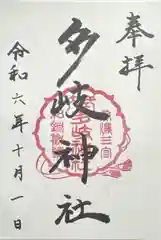 奉拝
多岐神社
令和六年十月一日